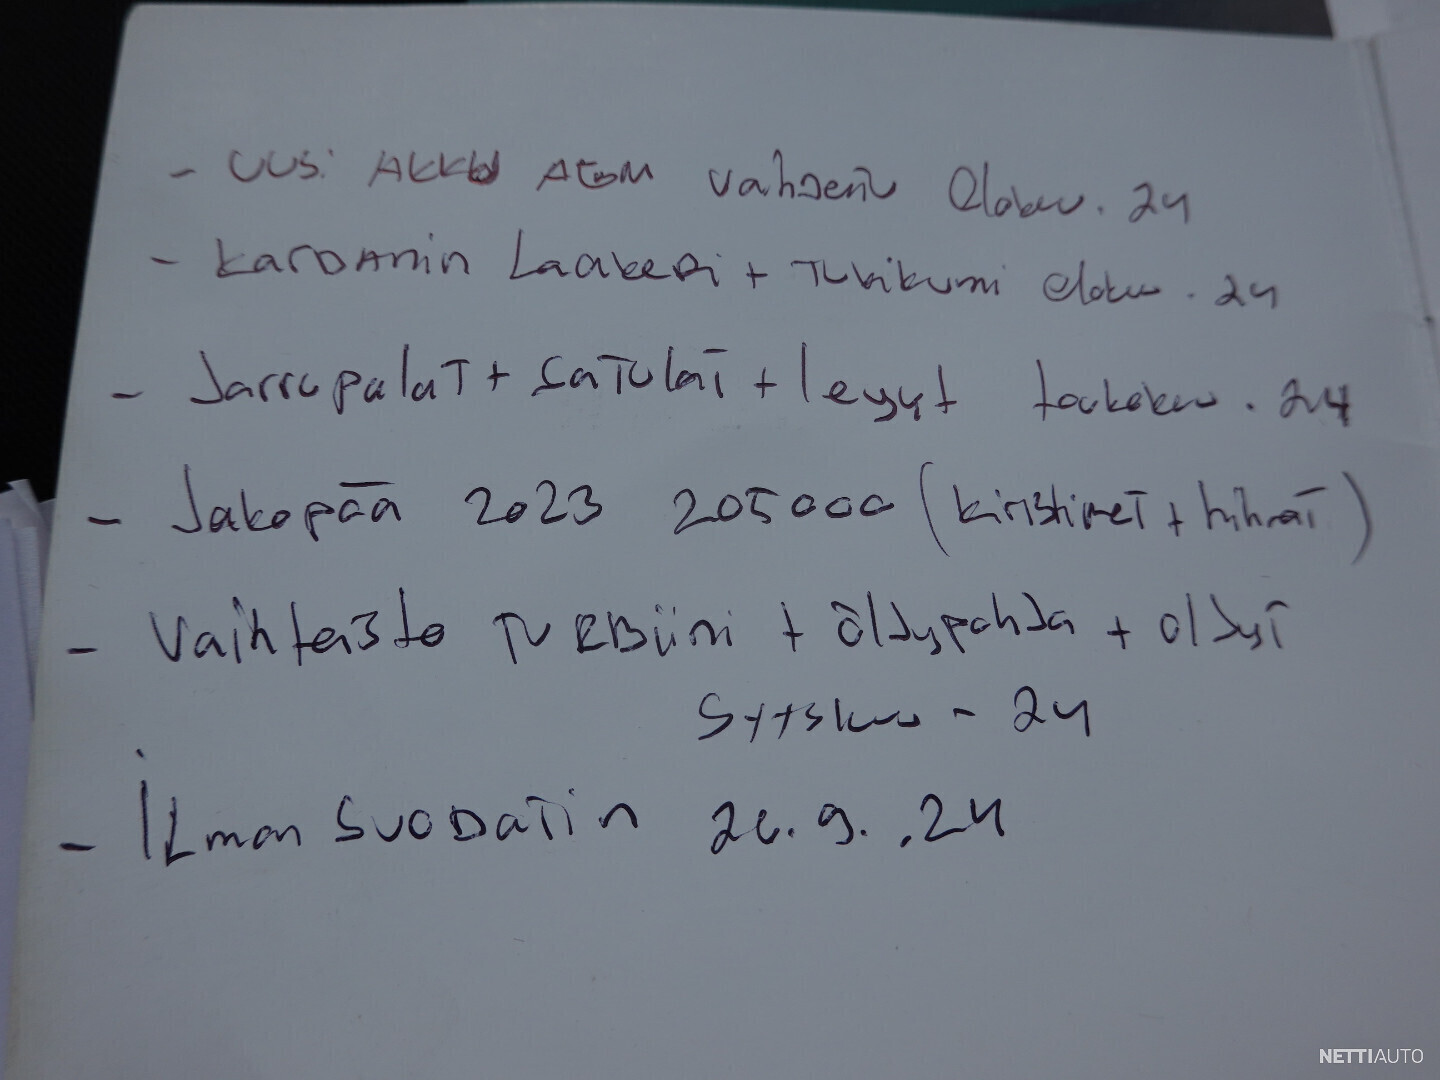 - UUSi AKKU AGM vahdettu Elokuu. 24
- KarDAnin Laakeri + Tukikumi elokuu. 24
- Jarrupalat + satulat + levyt toukokuu. 24
- Jakopää 2023 205000 (kiristimet + hihnat)
- Vaihteisto TURBiini + öljypohja + öljyt
Syyskuu - 24
- ILman SUODATin 26.9..24
NETTIAUTO